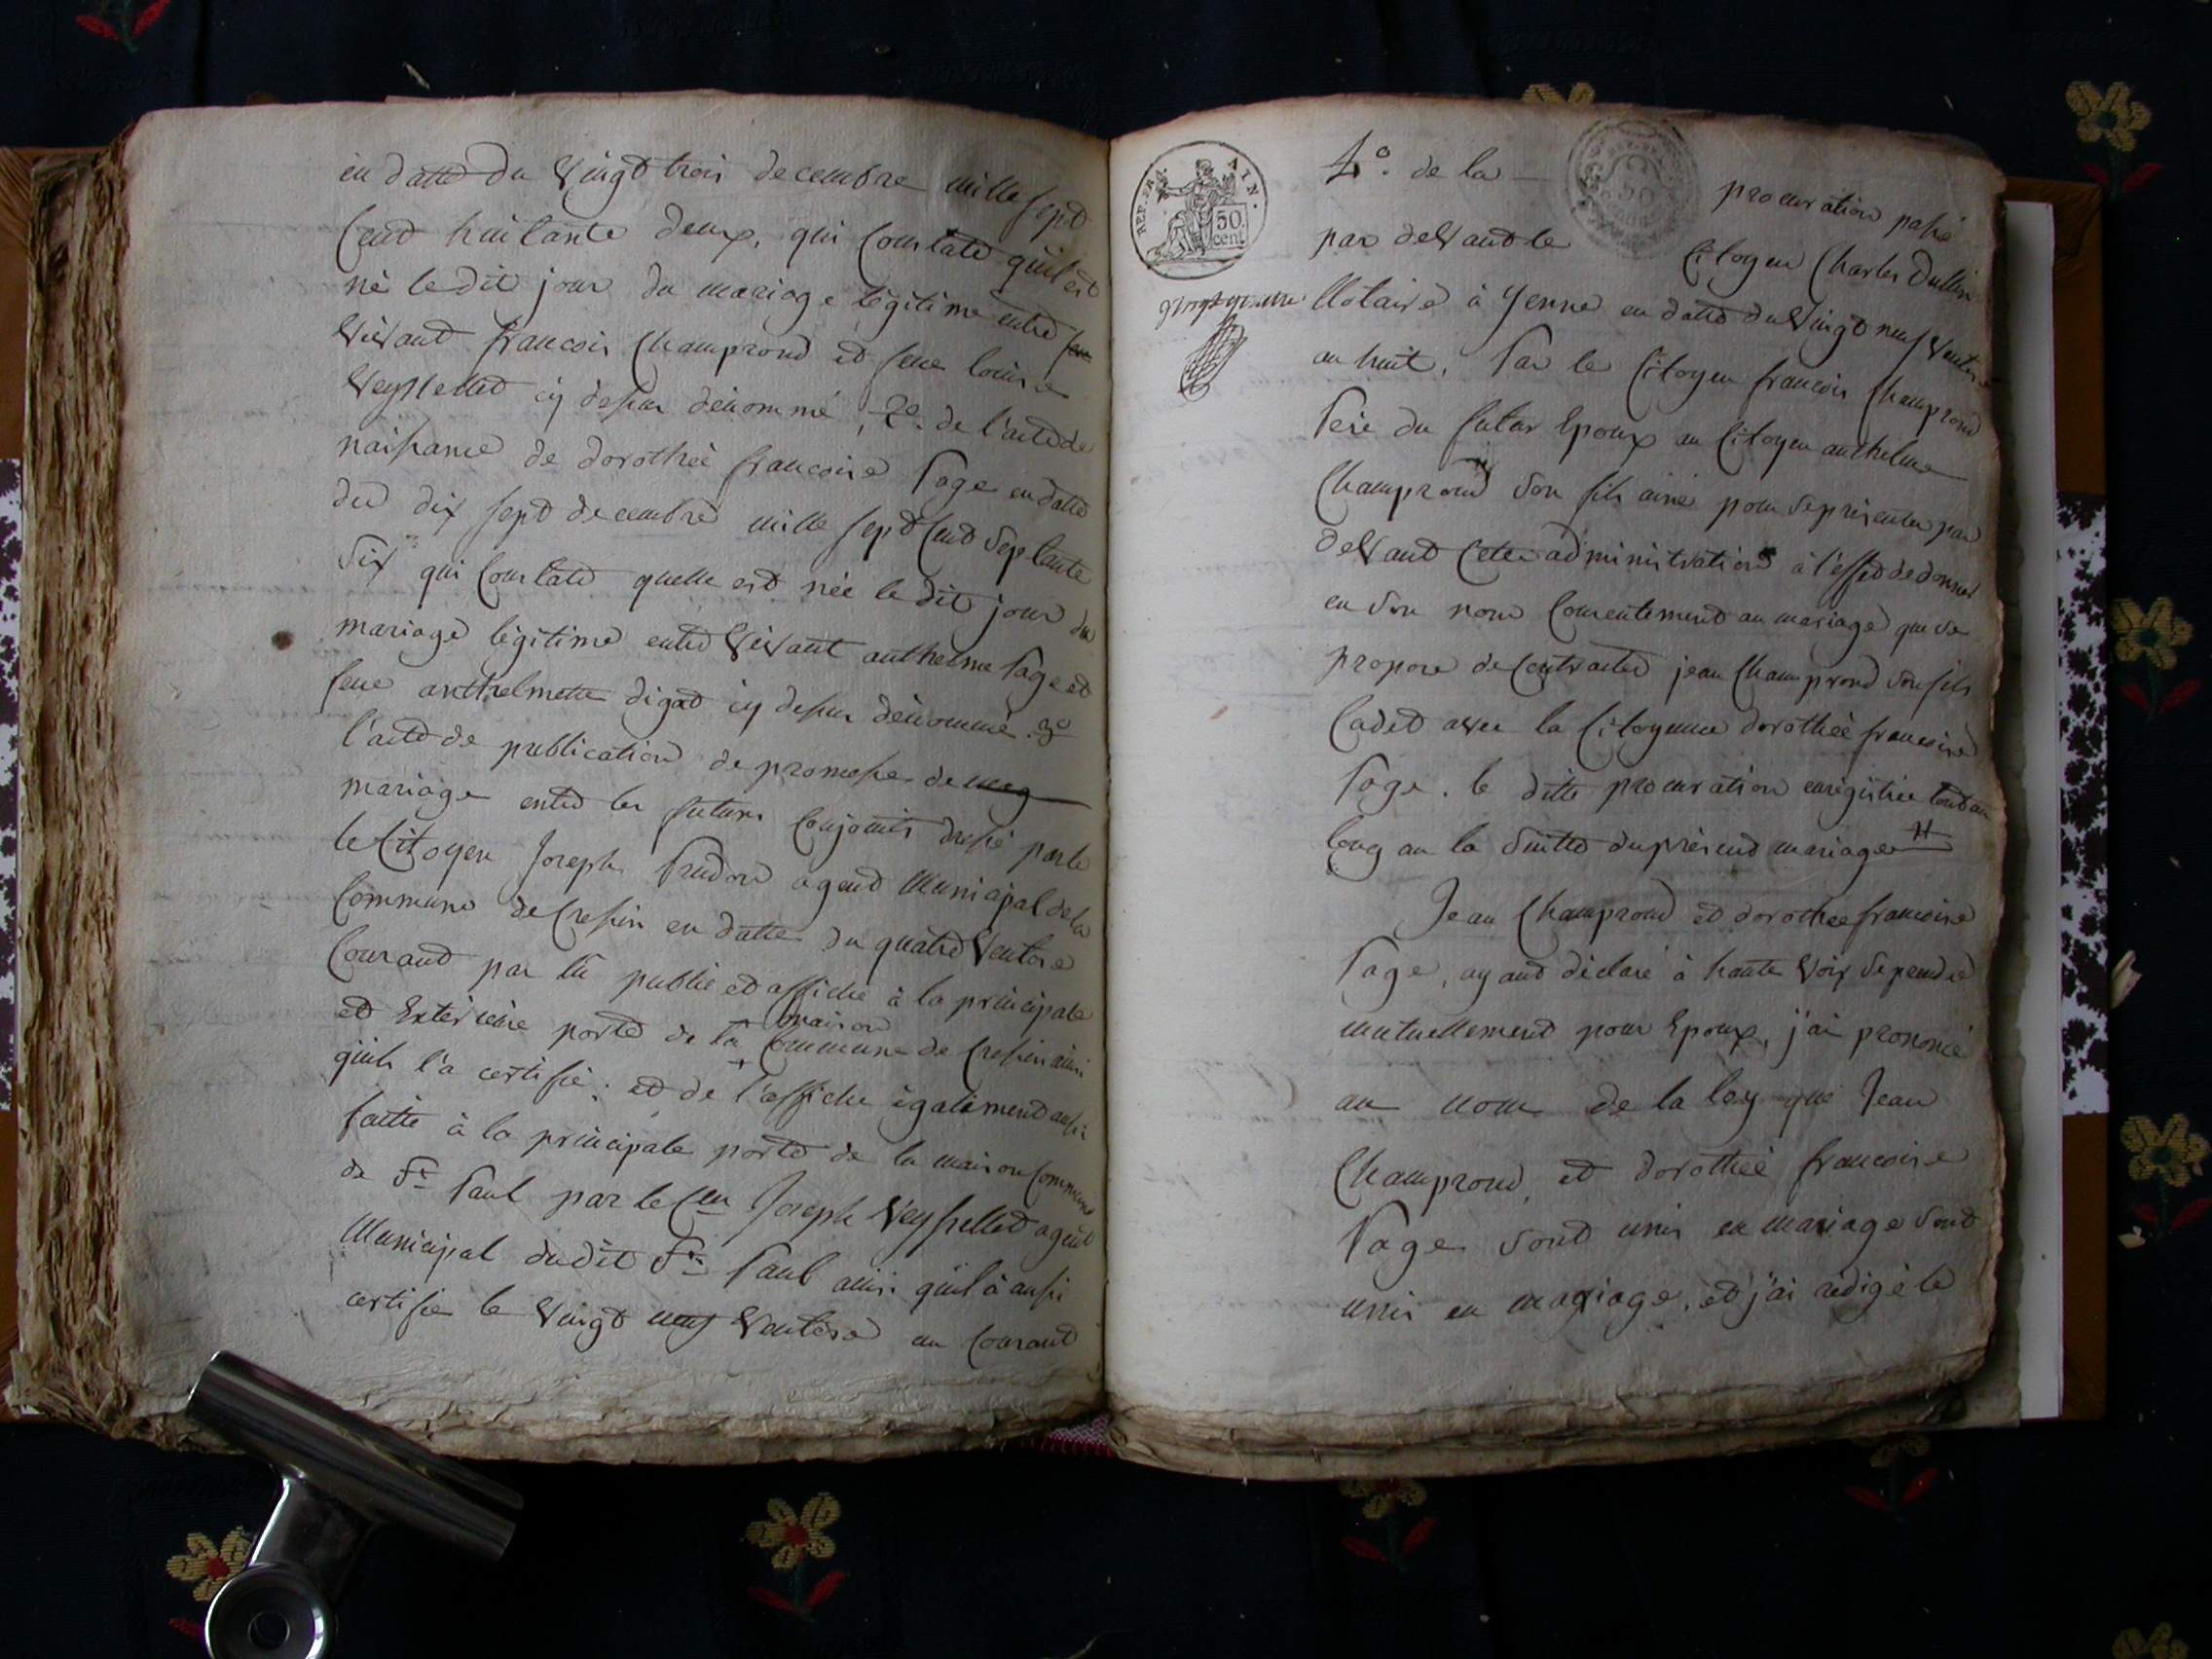 en datte du vingt trois decembre mille sept
Cent huitante deux, qui Constate quil est
né le dit jour du mariage légitime entre feu
vivant francois Champrond et feue louise
Veyssellet cy dessus dénommé, 2e. de l'acte de
naissance de dorothée francoise Page en datte
du dix sept decembre mille sept Cent Septante
Six qui Constate quelle est née le dit jour du
mariage légitime entre vivant anthelme Page et
feue anthelmette digat cy dessus dénommé. 3e
l'acte de publication de promesse de
mariage entre les futurs Conjoints dressé par le
le Citoyen Joseph Prudon agent Municipal de la
Commune de Cressin en datte du quatre Ventose
Courant par lui publié et affiché à la principale
maison
et Extérieure porte de la + Commune de Cressin ainsi
quil l'a certifié; et de l'affiche également aussi
faitte à la principale porte de la maison Commune
de St Paul par le Cen Joseph Veyssellet agent
Municipal dudit St Paul ainsi quil à aussi
certifié le vingt neuf Ventose an Courant
REP. FRA. AIN.
50 cent
4°. de la procuration passé
par devant le Citoyen Charles Dullin
Notaire à Yenne en datte du Vingt neuf Ventose
an huit, Par le Citoyen francois Champrond
Pere du futur Epoux au Citoyen anthelme
Champrond Son fils ainé pour Se présenter par
devant Cette administration à l'effet de donner
en Son nom Consentement au mariage que se
propose de Contracter jean Champrond son fils
Cadet avec la Citoyenne dorothée francoise
Page. la ditte procuration enrégistrée tout au
long au la Suitte du présent mariage
Jean Champrond et dorothee francoise
Page, ayant déclaré à haute voix Se prendre
mutuellement pour Epoux, j'ai prononcé
au nom de la loy que Jean
Champrond, et dorothée francoise
Page sont unis en mariage sont
unis en mariage, et j'ai rédigé le